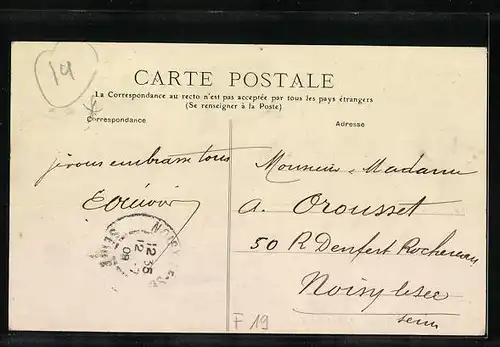 14
CARTE POSTALE
La Correspondance au recto n'est pas acceptée par tous les pays étrangers
(Se renseigner à la Poste)
Correspondance
Adresse
je vous embrasse tous
Monsieur Madame
A. Orousset
50 R Denfert Rochereau
Noisy le Sec
Seine
NOISY-LE-SEC
SEINE
12 35
12
09
F 19